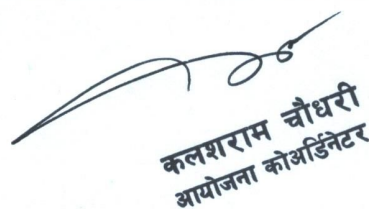 कलशराम चौधरी
आयोजना कोअर्डिनेटर